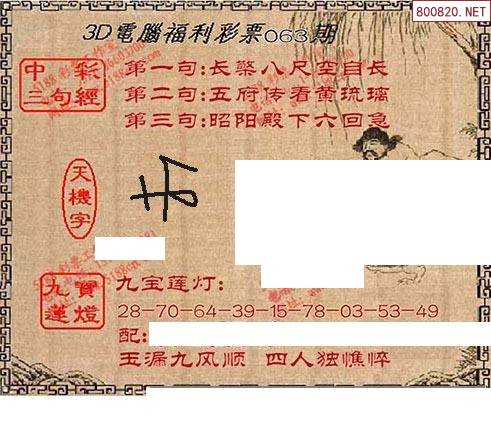 800820.NET
3D電腦福利彩票063期
中彩三句經
第一句:长檠八尺空自长
第二句:五府传看黄琉璃
第三句:昭阳殿下六回急
天機字
九寶蓮燈
九宝莲灯:
28-70-64-39-15-78-03-53-49
配:
玉漏九风顺 四人独憔悴